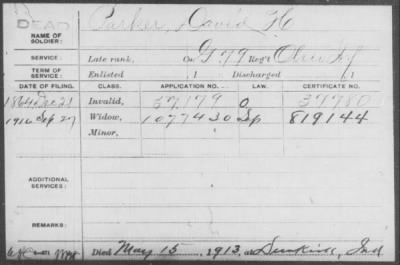 DEAD
NAME OF SOLDIER: Parker, David H
SERVICE: Late rank, Co G 79 Reg't Ohio Inf
TERM OF SERVICE: Enlisted , 1 Discharged , 1
DATE OF FILING. CLASS. APPLICATION NO. LAW. CERTIFICATE NO.
1864 Dec 21 Invalid, 57,179 O, 37780
1916 Sep 27 Widow, 1077430 Sp 819144
Minor,
ADDITIONAL SERVICES:
REMARKS:
Died May 15, 1913, at Ind